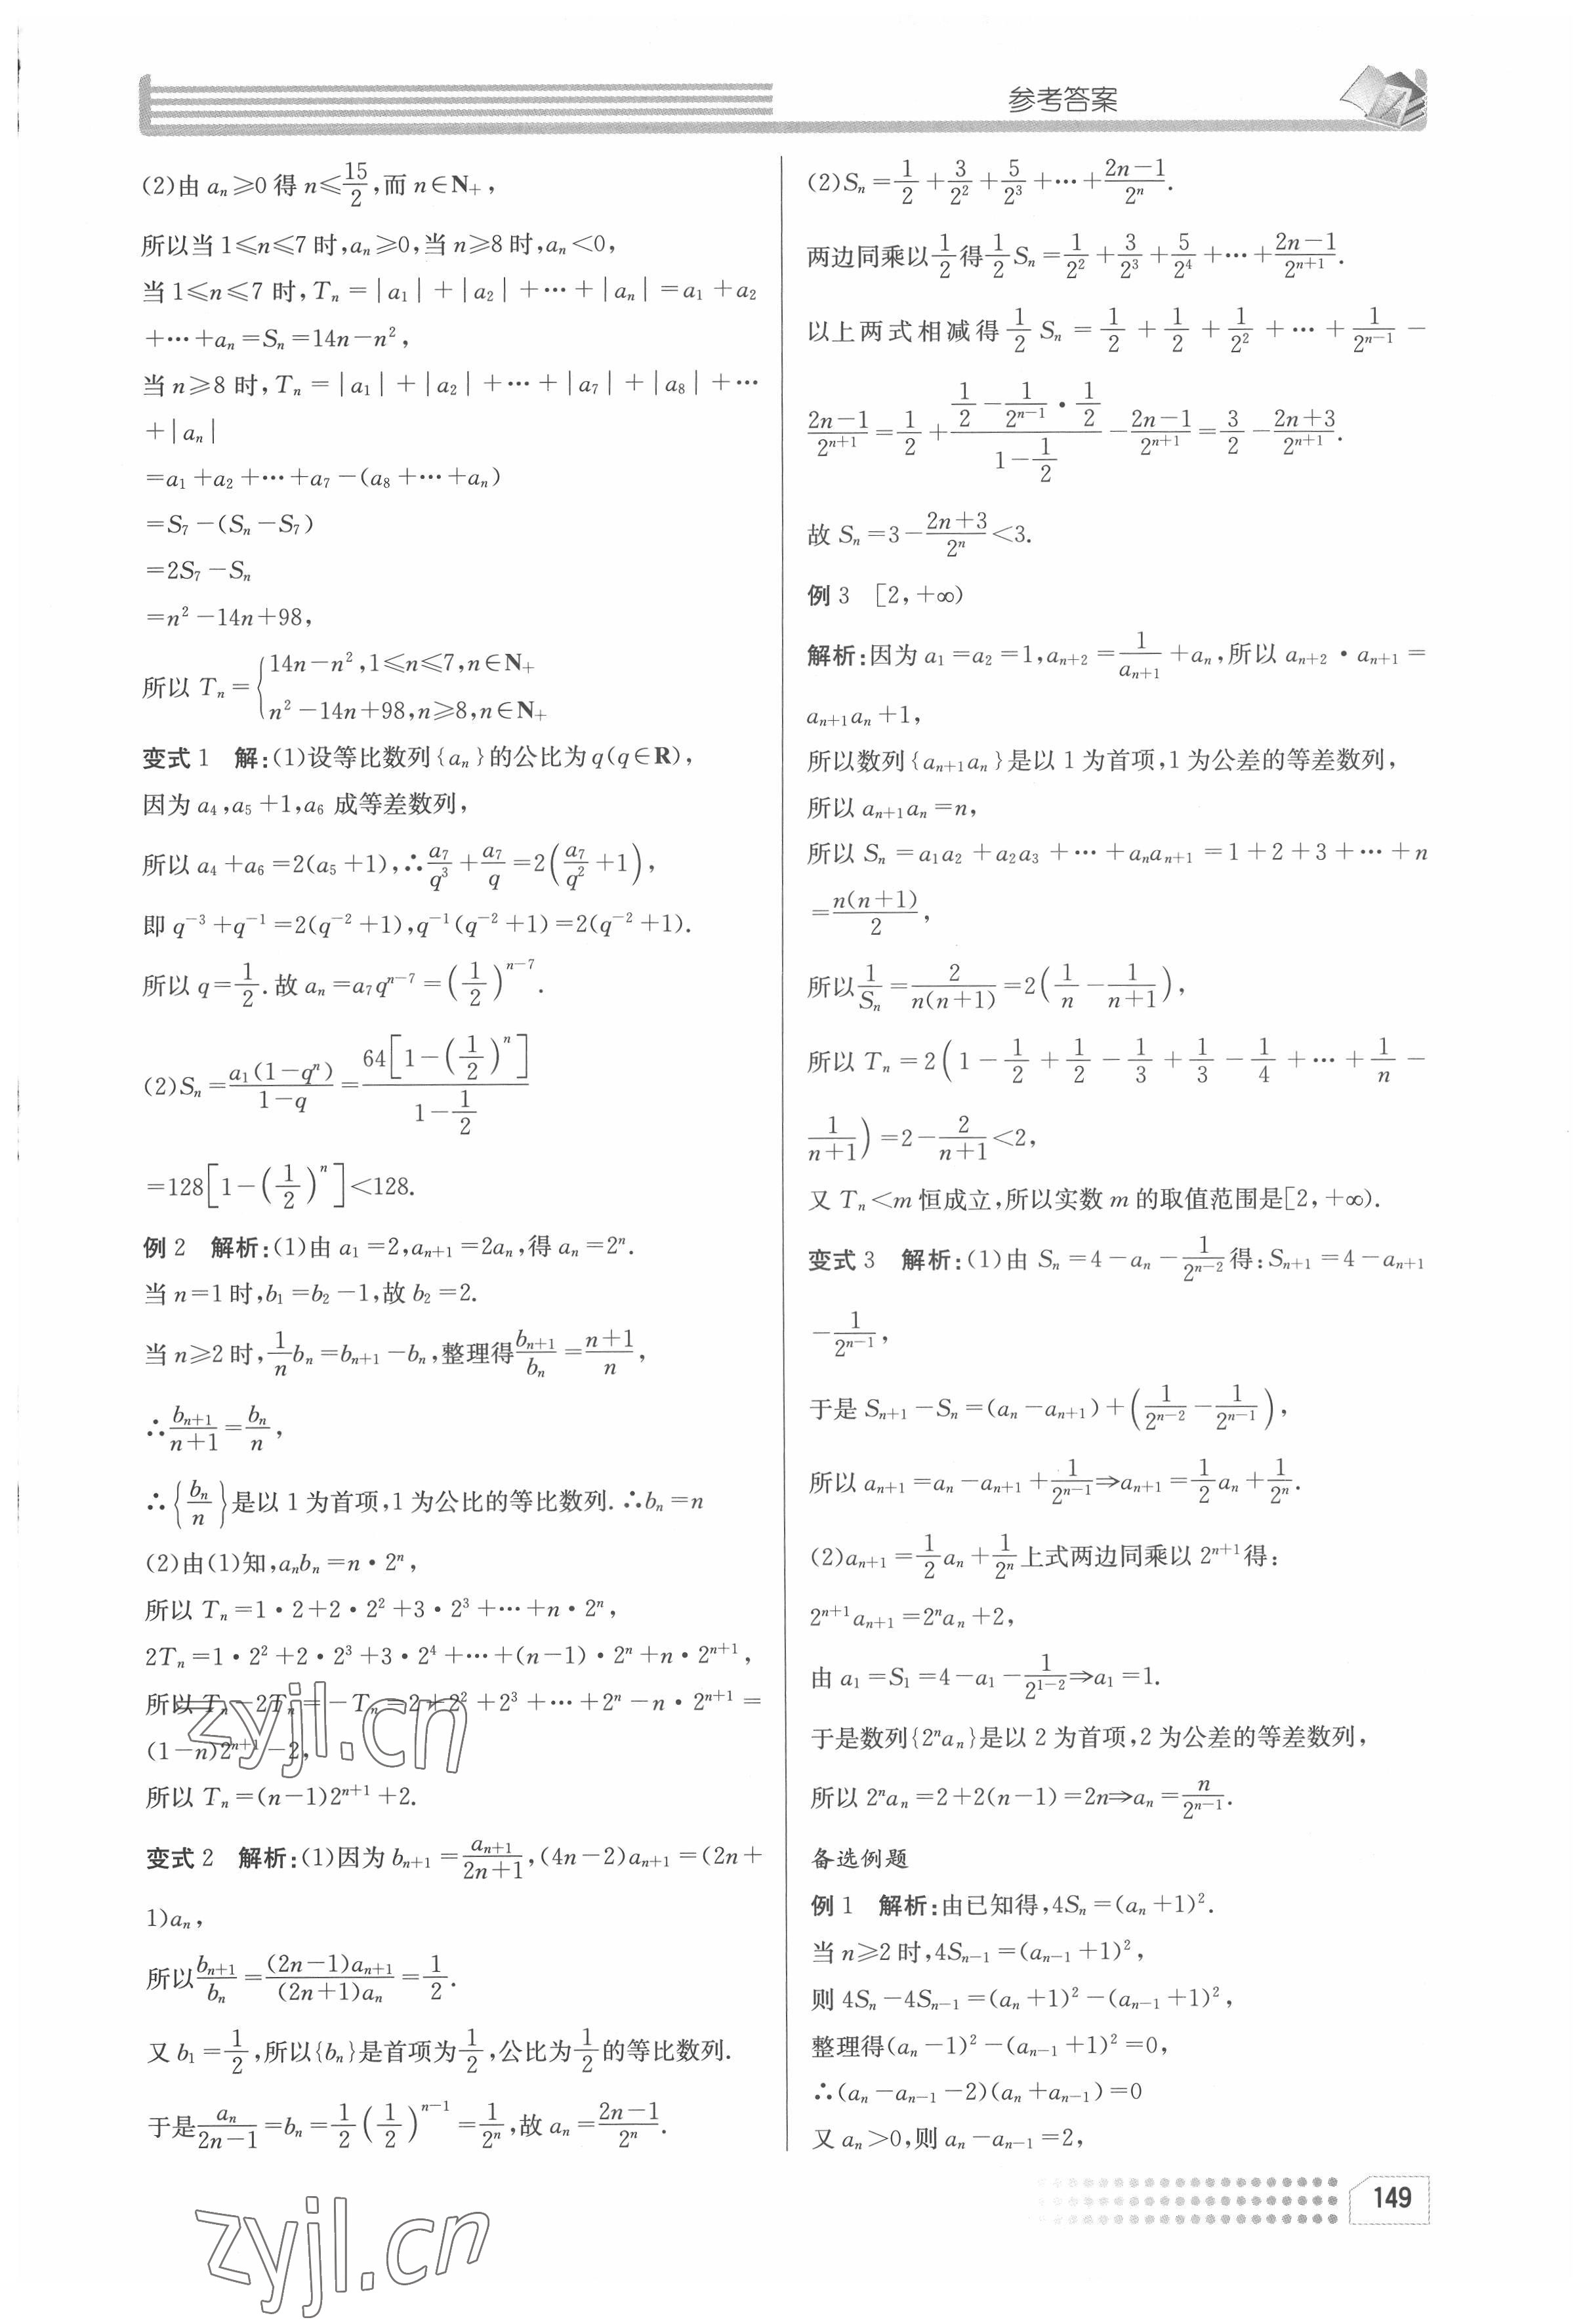 参考答案
(2)由 aₙ≥0 得 n≤15/2,而 n∈N₊,
所以当 1≤n≤7 时,aₙ≥0,当 n≥8 时,aₙ<0,
当 1≤n≤7 时,Tₙ=|a₁|+|a₂|+⋯+|aₙ|=a₁+a₂
+⋯+aₙ=Sₙ=14n-n²,
当 n≥8 时,Tₙ=|a₁|+|a₂|+⋯+|a₇|+|a₈|+⋯
+|aₙ|
=a₁+a₂+⋯+a₇-(a₈+⋯+aₙ)
=S₇-(Sₙ-S₇)
=2S₇-Sₙ
=n²-14n+98,
所以 Tₙ={14n-n²,1≤n≤7,n∈N₊
n²-14n+98,n≥8,n∈N₊
变式 1 解:(1)设等比数列{aₙ}的公比为 q(q∈R),
因为 a₄,a₅+1,a₆ 成等差数列,
所以 a₄+a₆=2(a₅+1),∴a₇/q³+a₇/q=2(a₇/q²+1),
即 q⁻³+q⁻¹=2(q⁻²+1),q⁻¹(q⁻²+1)=2(q⁻²+1).
所以 q=1/2.故 aₙ=a₇qⁿ⁻⁷=(1/2)ⁿ⁻⁷.
(2)Sₙ=a₁(1-qⁿ)/(1-q)=64[1-(1/2)ⁿ]/(1-1/2)
=128[1-(1/2)ⁿ]<128.
例 2 解析:(1)由 a₁=2,aₙ₊₁=2aₙ,得 aₙ=2ⁿ.
当 n=1 时,b₁=b₂-1,故 b₂=2.
当 n≥2 时,1/n bₙ=bₙ₊₁-bₙ,整理得 bₙ₊₁/bₙ=(n+1)/n,
∴bₙ₊₁/(n+1)=bₙ/n,
∴{bₙ/n}是以 1 为首项,1 为公比的等比数列.∴bₙ=n
(2)由(1)知,aₙbₙ=n·2ⁿ,
所以 Tₙ=1·2+2·2²+3·2³+⋯+n·2ⁿ,
2Tₙ=1·2²+2·2³+3·2⁴+⋯+(n-1)·2ⁿ+n·2ⁿ⁺¹,
所以 Tₙ-2Tₙ=-Tₙ=2+2²+2³+⋯+2ⁿ-n·2ⁿ⁺¹=
(1-n)2ⁿ⁺¹-2,
所以 Tₙ=(n-1)2ⁿ⁺¹+2.
变式 2 解析:(1)因为 bₙ₊₁=aₙ₊₁/(2n+1),(4n-2)aₙ₊₁=(2n+
1)aₙ,
所以 bₙ₊₁/bₙ=(2n-1)aₙ₊₁/(2n+1)aₙ=1/2.
又 b₁=1/2,所以{bₙ}是首项为1/2,公比为1/2的等比数列.
于是 aₙ/(2n-1)=bₙ=1/2(1/2)ⁿ⁻¹=1/2ⁿ,故 aₙ=(2n-1)/2ⁿ.
(2)Sₙ=1/2+3/2²+5/2³+⋯+(2n-1)/2ⁿ.
两边同乘以1/2得1/2 Sₙ=1/2²+3/2³+5/2⁴+⋯+(2n-1)/2ⁿ⁺¹.
以上两式相减得 1/2 Sₙ=1/2+1/2+1/2²+⋯+1/2ⁿ⁻¹-
(2n-1)/2ⁿ⁺¹=1/2+(1/2-1/2ⁿ⁻¹·1/2)/(1-1/2)-(2n-1)/2ⁿ⁺¹=3/2-(2n+3)/2ⁿ⁺¹.
故 Sₙ=3-(2n+3)/2ⁿ<3.
例 3 [2,+∞)
解析:因为 a₁=a₂=1,aₙ₊₂=1/aₙ₊₁+aₙ,所以 aₙ₊₂·aₙ₊₁=
aₙ₊₁aₙ+1,
所以数列{aₙ₊₁aₙ}是以 1 为首项,1 为公差的等差数列,
所以 aₙ₊₁aₙ=n,
所以 Sₙ=a₁a₂+a₂a₃+⋯+aₙaₙ₊₁=1+2+3+⋯+n
=n(n+1)/2,
所以 1/Sₙ=2/n(n+1)=2(1/n-1/(n+1)),
所以 Tₙ=2(1-1/2+1/2-1/3+1/3-1/4+⋯+1/n-
1/(n+1))=2-2/(n+1)<2,
又 Tₙ<m 恒成立,所以实数 m 的取值范围是[2,+∞).
变式 3 解析:(1)由 Sₙ=4-aₙ-1/2ⁿ⁻²得:Sₙ₊₁=4-aₙ₊₁
-1/2ⁿ⁻¹,
于是 Sₙ₊₁-Sₙ=(aₙ-aₙ₊₁)+(1/2ⁿ⁻²-1/2ⁿ⁻¹),
所以 aₙ₊₁=aₙ-aₙ₊₁+1/2ⁿ⁻¹⇒aₙ₊₁=1/2 aₙ+1/2ⁿ.
(2)aₙ₊₁=1/2 aₙ+1/2ⁿ上式两边同乘以 2ⁿ⁺¹得:
2ⁿ⁺¹aₙ₊₁=2ⁿaₙ+2,
由 a₁=S₁=4-a₁-1/2¹⁻²⇒a₁=1.
于是数列{2ⁿaₙ}是以 2 为首项,2 为公差的等差数列,
所以 2ⁿaₙ=2+2(n-1)=2n⇒aₙ=n/2ⁿ⁻¹.
备选例题
例 1 解析:由已知得,4Sₙ=(aₙ+1)².
当 n≥2 时,4Sₙ₋₁=(aₙ₋₁+1)²,
则 4Sₙ-4Sₙ₋₁=(aₙ+1)²-(aₙ₋₁+1)²,
整理得(aₙ-1)²-(aₙ₋₁+1)²=0,
∴(aₙ-aₙ₋₁-2)(aₙ+aₙ₋₁)=0
又 aₙ>0,则 aₙ-aₙ₋₁=2,
149
zyjl.cn
zyjl.cn